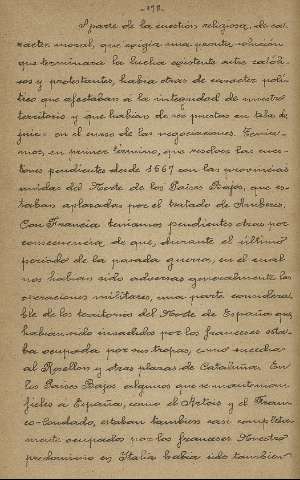 -178-
Aparte de la cuestión religiosa, de ca-
racter moral, que exigía una pronta solución
que terminara la lucha existente entre católi-
cos y protestantes, había otras de caracter polí-
tico que afectaban á la integridad de nuestro
territorio y que habían de ser puestas en tela de
juicio en el curso de las negociaciones. Tenía-
mos, en primer término, que resolver las cues-
tiones pendientes desde 1667 con las provincias
unidas del Norte de los Paises Bajos, que es-
taban aplazadas por el tratado de Amberes.
Con Francia teníamos pendientes otras por
consecuencia de que, durante el último
periodo de la pasada guerra, en el cual
nos habían sido adversas generalmente las
operaciones militares, una parte considera-
ble de los territorios del Norte de España que
habían sido invadidos por los franceses esta-
ba ocupada por sus tropas, como sucedía
al Rosellon y otras plazas de Cataluña. En
los Paises Bajos algunos que se mantenían
fieles á España, como el Artois y el Fran-
co-Condado, estaban tambien casi completa-
mente ocupados por los franceses. Nuestro
predominio en Italia había sido tambien